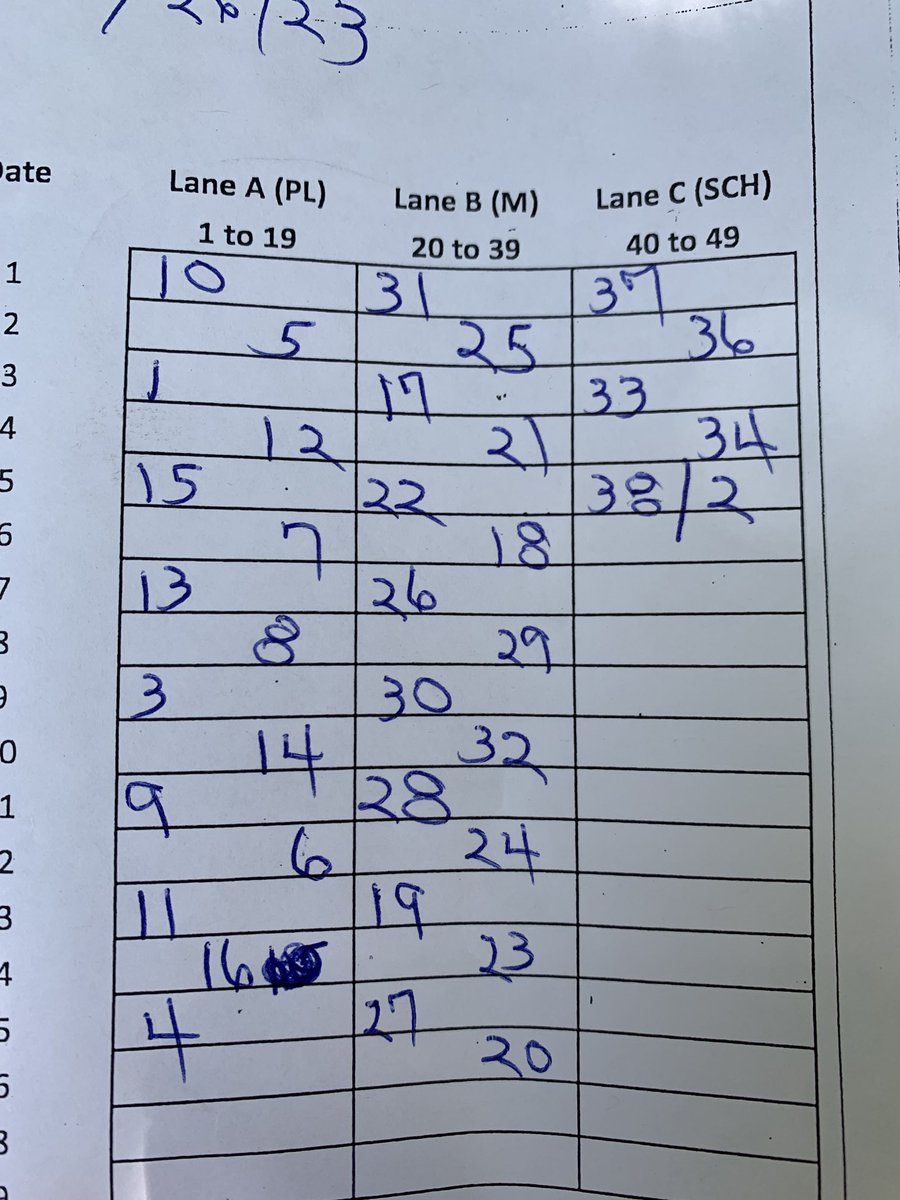 /26/23
Date Lane A (PL) Lane B (M) Lane C (SCH)
1 to 19 20 to 39 40 to 49
1 10 31 37
2 5 25 36
3 1 17 33
4 12 21 34
5 15 22 38/2
6 7 18
7 13 26
8 8 29
9 3 30
0 14 32
1 9 28
2 6 24
3 11 19
4 16 23
5 4 27
6 20
8